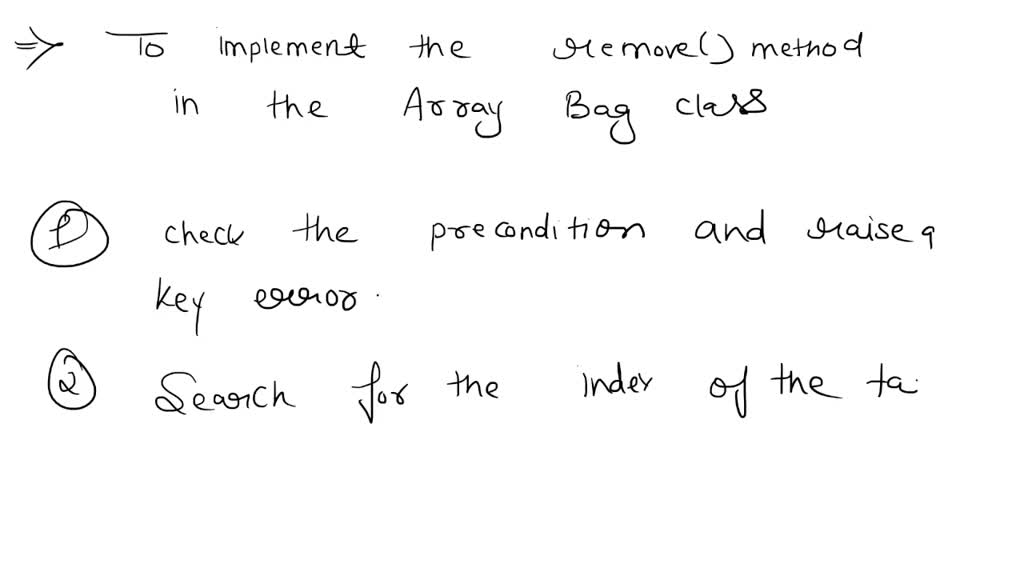 ⇒ To implement the remove() method
in the Array Bag class
① check the precondition and raise a
key error.
② Search for the index of the ta